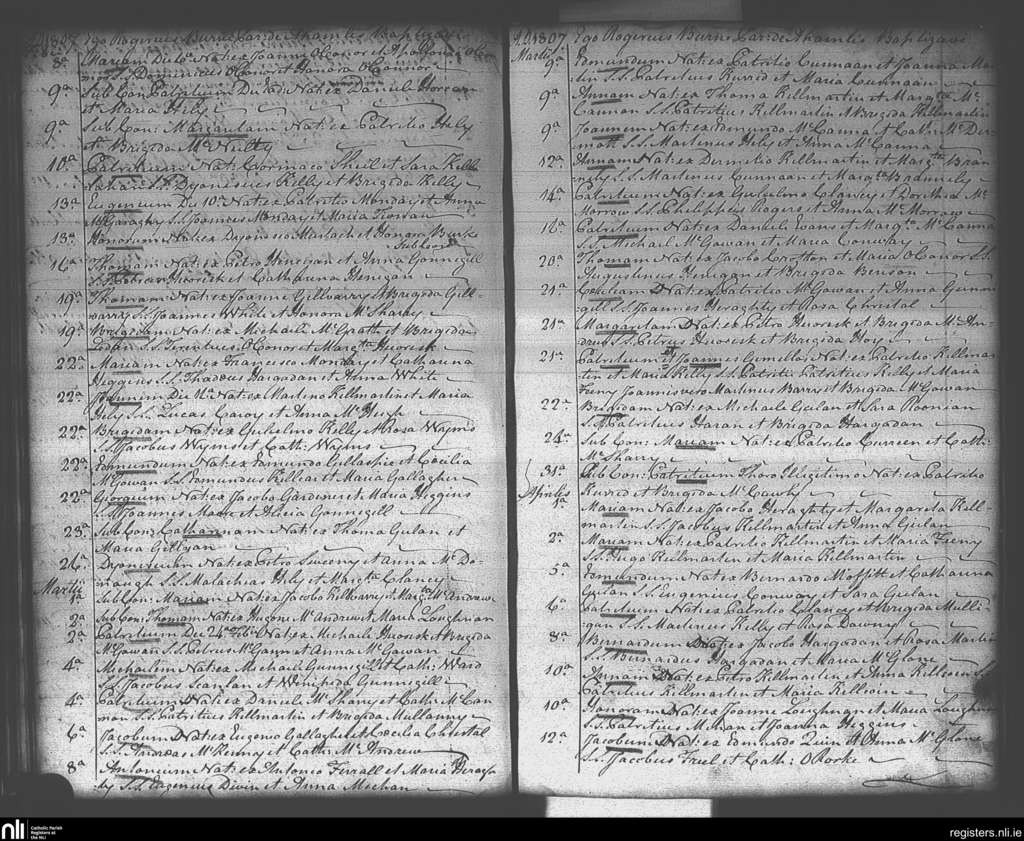 1807 Ego Rogerius Burne Par: de Ahamlis Baptizavi
8ª Mariam Natiex Joanne OConor et Apolonia OCo
nor S.S. Dominicus OConor et Honora OConnor
9ª Sub Con: Patritium Natiex Daniele Horran
et Maria Hely
9ª Sub Con: Margaritam Natiex Patritio Hely
et Brigida McNulty
10ª Patritium Nati Cormaco Sheil et Sara Kelly
S.S. Dyonesius Kelly et Brigida Kelly
13ª Eugenium Die 10ª Natiex Patritio Monday et Anna
McGaraghy S.S. Joannes Monday et Maria
13ª Honoram Natiex Dyonesio Murtach et Honora Burke
Sub Con:
16ª Thomam Natiex Petro Henegan et Anna Gonnegill
S.S. Heoresk et Catharina Henegan
19ª Thomam Natiex Joanne Gillvarry et Brigida Gill-
varry S.S. Joannes White et Honora McSharky
19ª Brigidam Natiex Michaele McGrath et Brigida
S.S. Terentius OConor et Margta Heoresk
22ª Mariam Natiex Francisco Monday et Catharina
Higgins S.S. Thadeus Hargadan et Anna White
22ª Joannem Die 11ª Natiex Martino Killmartin et Maria
Hely S.S. Lucas Caroy et Anna McHugh
22ª Brigidam Natiex Guhelmo Kelly et Rosa Wayms
S.S. Jacobus Wayms et Cath: Wayms
22ª Edmundum Natiex Edmundo Gillaspie et Cecilia
McGowan S.S. Edmundus Killea et Maria Gallagher
22ª Giorgium Natiex Jacobo Gardener et Maria Higgins
S.S. Joannes Moore et Alicia Gonnegill
23ª Sub Con: Catharinam Natiex Thoma Gilan et
Maria Gillgan
26ª Dyonesium Natiex Petro Sweeny et Anna McDo-
naugh S.S. Malachias Hely et Margta Clancy
Martii
1ª Sub Con: Mariam Natiex Jacobo Killvarry et Margta McAndrew
2ª Sub Con: Thomam Natiex Hugone McAndrew et Maria Loughnan
2ª Patritium Die 24ª Feb: Natiex Michaele Heoresk et Brigida
McGowan S.S. Petrus McGann et Anna McGowan
4ª Michaelem Natiex Michaele Gunnegill et Cath: Ward
S.S. Jacobus Scanlan et Winifreda Gunnegill
4ª Patritium Natiex Daniele McShany et Cath: McCan
non S.S. Patritius Killmartin et Brigida Mullanny
6ª Jacobum Natiex Eugenio Gallagher et Cecilia Christal
S.S. Andreas McKenny et Cath: McAndrew
8ª Antonium Natiex Antonio Ferrall et Maria Heragh
ty S.S. Eugenius Divin et Anna Meehan
A.D. 1807 Ego Rogerius Burne Par: de Ahamlis Baptizavi
Martii
9ª Edmundum Natiex Patritio Cunnaan et Joanna Mar
tin S.S. Patritius Ruvid et Maria Cunnaan
9ª Annam Natiex Thoma Killmartin et Margta Mc
Cannon S.S. Patritius Killmartin et Brigida Killmartin
9ª Joannem Natiex Edmundo McCanna et Cath: McDer
mott S.S. Martinus Hely et Anna McCanna
12ª Annam Natiex Dermitio Killmartin et Margta Bran
S.S. Martinus Cunnaan et Margta
14ª Patritium Natiex Guhelmo Clancy et Dorothea Mc
Morrow S.S. Philippus Rogers et Anna McMorrow
18ª Patritium Natiex Daniele Evans et Margta McCanna
S.S. Michael McGowan et Maria Conway
20ª Thomam Natiex Jacobo Crofton et Maria OConor S.S.
Henigan et Brigida Benson
21ª Ceciliam Natiex Patritio McGowan et Anna Gunni
gill S.S. Joannes Heraghty et Rosa Christal
21ª Margaritam Natiex Petro Heoresk et Brigida McAn
drew S.S. Petrus Heoresk et Brigida Hoy
21ª Patritium et Joannes Gemellos Natiex Patritio Killmar
tin et Maria Kelly S.S. Patritii Patritius Kelly et Maria
Feeny Joannis vero Martinus Barry et Brigida McGowan
22ª Brigidam Natiex Michaele Gilan et Sara Noonian
S.S. Patritius Haran et Brigida Hargadan
24ª Sub Con: Mariam Natiex Patritio Curreen et Cath:
McSharry
31ª Sub Con: Patritium Thoro Illegitimo Natiex Patritio
Ruvid et Brigida McCawly
Aprilis
1ª Mariam Natiex Jacobo Heraghty et Margarita Kill
martin S.S. Jacobus Killmartin et Anna Gilan
2ª Mariam Natiex Patritio Killmartin et Maria Feeny
S.S. Hugo Killmartin et Maria Killmartin
5ª Edmundum Natiex Bernardo Moffitt et Catharina
Gilan S.S. Eugenius Conway et Sara Gilan
6ª Patritium Natiex Patritio Clancy et Brigida Mulli
gan S.S. Martinus Kelly et Rosa Downy
8ª Bernardum Natiex Jacobo Hargadan et Rosa Martin
S.S. Bernardus Hargadan et Maria McGlone
10ª Annam Natiex Petro Killmartin et Anna Killroin S.S.
Patritius Killmartin et Maria Killroin
10ª Honoram Natiex Joanne Loughnan et Maria Loughnan
S.S. Patritius Mihan et Joanna Higgins
12ª Jacobum Natiex Edmundo Quin et Anna McGlone
S.S. Jacobus Friel et Cath: ORorke
nli Catholic Parish
Registers at
the NLI
registers.nli.ie